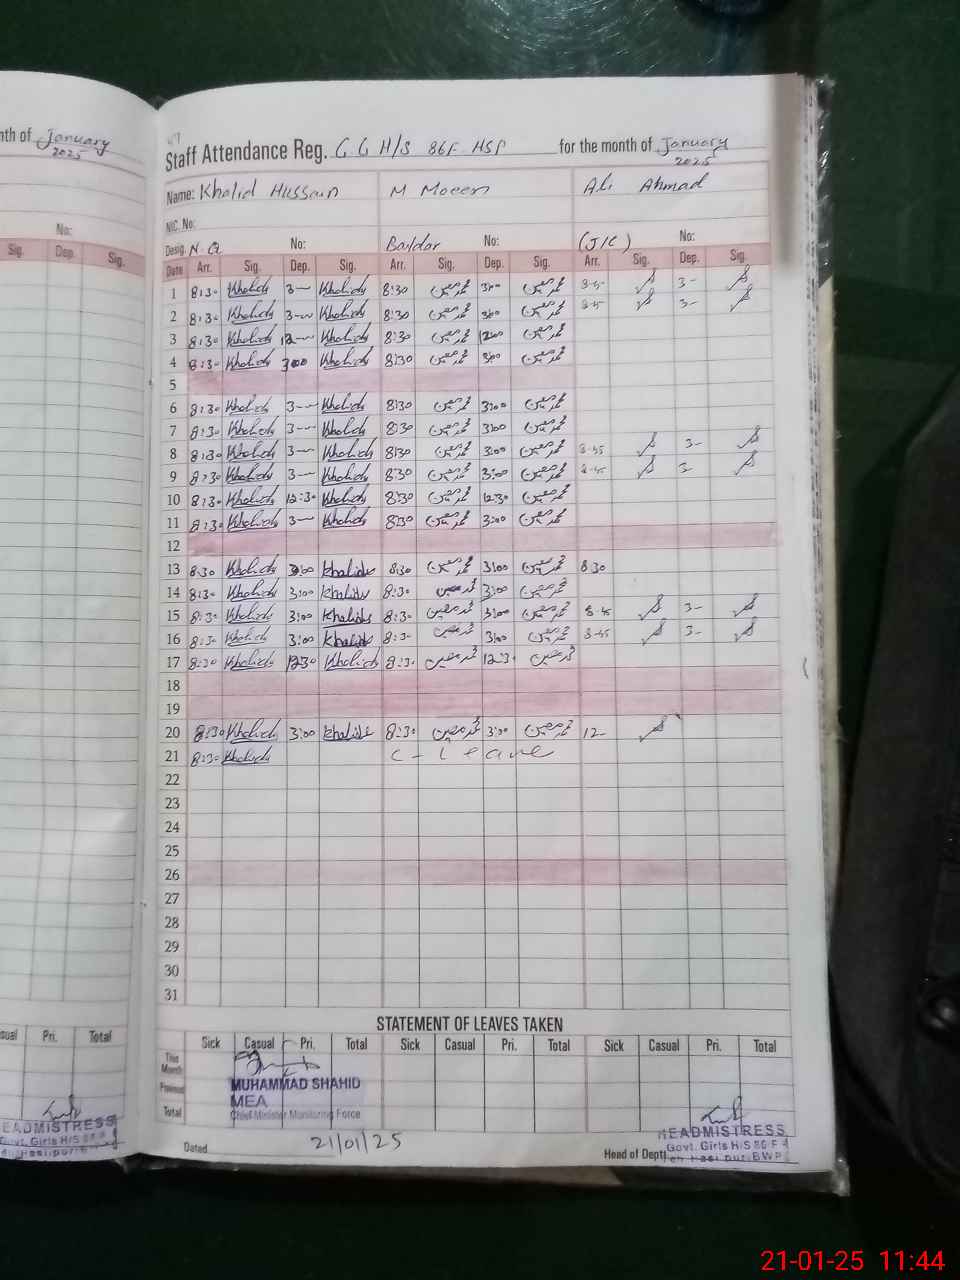 nth of January
2025
No:
Sig. Dep. Sig.
Staff Attendance Reg. G G H/S 86F HSP for the month of January
2025
Name: Khalid Hussain M Moeen Ali Ahmad
NIC. No:
Desig. N.Q No: Baldar No: (J/C) No:
Date Arr. Sig. Dep. Sig. Arr. Sig. Dep. Sig. Arr. Sig. Dep. Sig.
1 8:30 Khalid 3— Khalid 8:30 محمد معین 3:00 محمد معین 8-45 3-
2 8:30 Khalid 3— Khalid 8:30 محمد معین 3:00 محمد معین 8-45 3-
3 8:30 Khalid 12— Khalid 8:30 محمد معین 12:00 محمد معین
4 8:30 Khalid 3:00 Khalid 8:30 محمد معین 3:00 محمد معین
5
6 8:30 Khalid 3— Khalid 8:30 محمد معین 3:00 محمد معین
7 8:30 Khalid 3— Khalid 8:30 محمد معین 3:00 محمد معین
8 8:30 Khalid 3— Khalid 8:30 محمد معین 3:00 محمد معین 8-45 3-
9 8:30 Khalid 3— Khalid 8:30 محمد معین 3:00 محمد معین 8-45 3-
10 8:30 Khalid 12:30 Khalid 8:30 محمد معین 12:30 محمد معین
11 8:30 Khalid 3— Khalid 8:30 محمد معین 3:00 محمد معین
12
13 8:30 Khalid 3:00 Khalid 8:30 محمد معین 3:00 محمد معین 8:30
14 8:30 Khalid 3:00 Khalid 8:30 محمد معین 3:00 محمد معین
15 8:30 Khalid 3:00 Khalid 8:30 محمد معین 3:00 محمد معین 8-45 3-
16 8:30 Khalid 3:00 Khalid 8:30 محمد معین 3:00 محمد معین 8-45 3-
17 8:30 Khalid 12:30 Khalid 8:30 محمد معین 12:30 محمد معین
18
19
20 8:30 Khalid 3:00 Khalid 8:30 محمد معین 3:00 محمد معین 12-
21 8:30 Khalid C-Leave
22
23
24
25
26
27
28
29
30
31
STATEMENT OF LEAVES TAKEN
sual Pri. Total
Sick Casual Pri. Total Sick Casual Pri. Total Sick Casual Pri. Total
This Month
Previous
Total
MUHAMMAD SHAHID
MEA
Chief Minister Monitoring Force
EADMISTRESS
Govt. Girls H/S 86 F
HEADMISTRESS
Govt. Girls H/S 86 F
Teh Hasilpur BWP
Dated 21/01/25
Head of Deptt
21-01-25 11:44